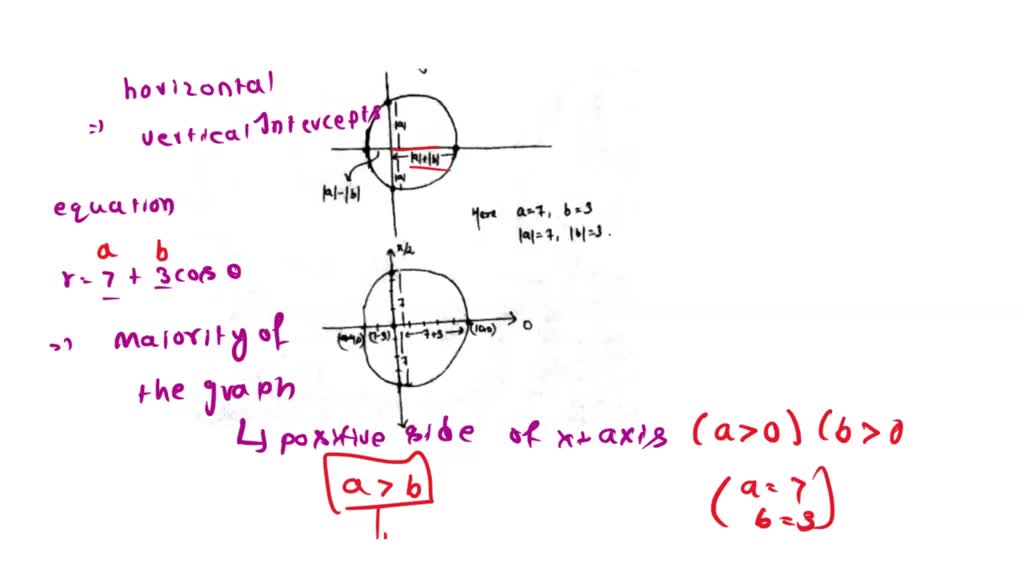 horizontal
=) vertical Intercepts
|a|
|a|+|b|
|a|
|a|-|b|
equation
Here a=7, b=3
|a|=7, |b|=3.
a b
r = 7 + 3 cos θ
π/2
7
(-4,0) (7-3) 7+3 (10,0) 0
7
=) majority of
the graph
↳ positive side of x-axis (a>0) (b>0
a > b
(a = 7
b = 3)